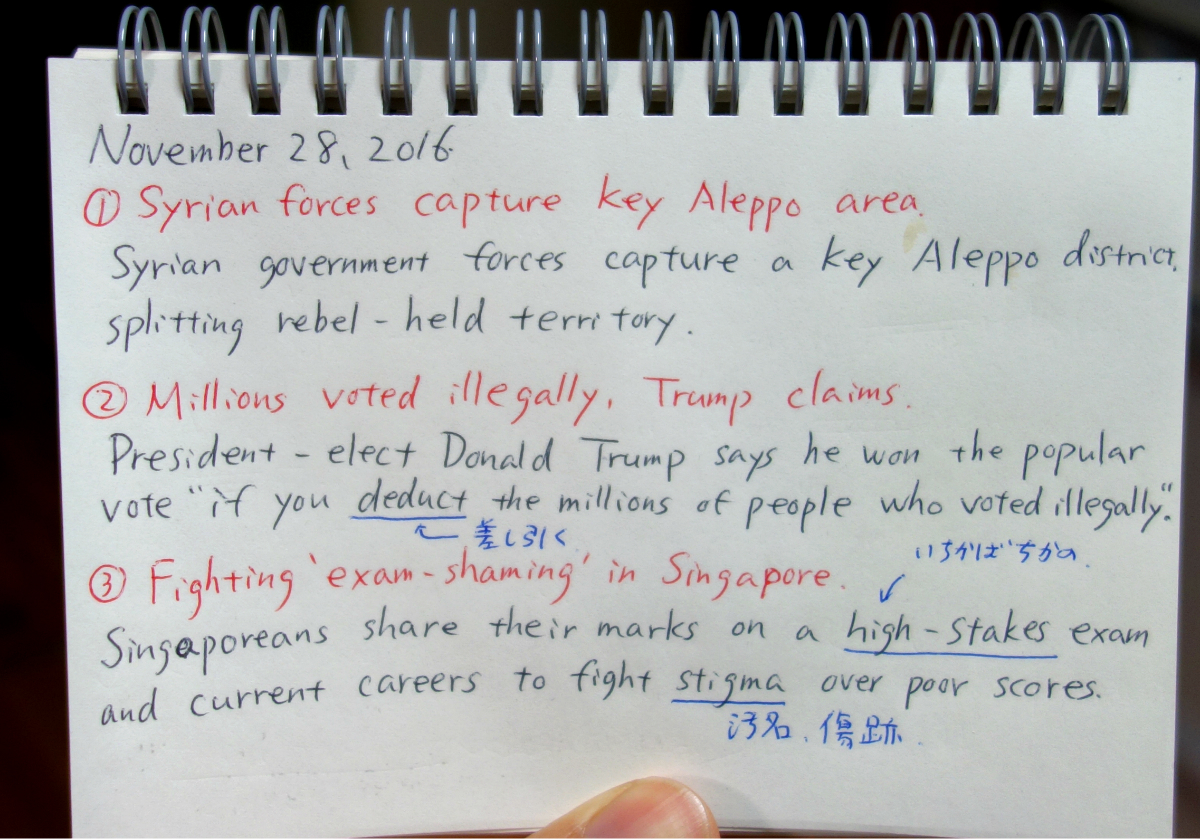 November 28, 2016
① Syrian forces capture key Aleppo area.
Syrian government forces capture a key Aleppo district,
splitting rebel-held territory.
② Millions voted illegally, Trump claims.
President-elect Donald Trump says he won the popular
vote "if you deduct the millions of people who voted illegally".
← 差し引く
いちかばちかの
③ Fighting 'exam-shaming' in Singapore.
Singaporeans share their marks on a high-stakes exam
and current careers to fight stigma over poor scores.
汚名、傷跡